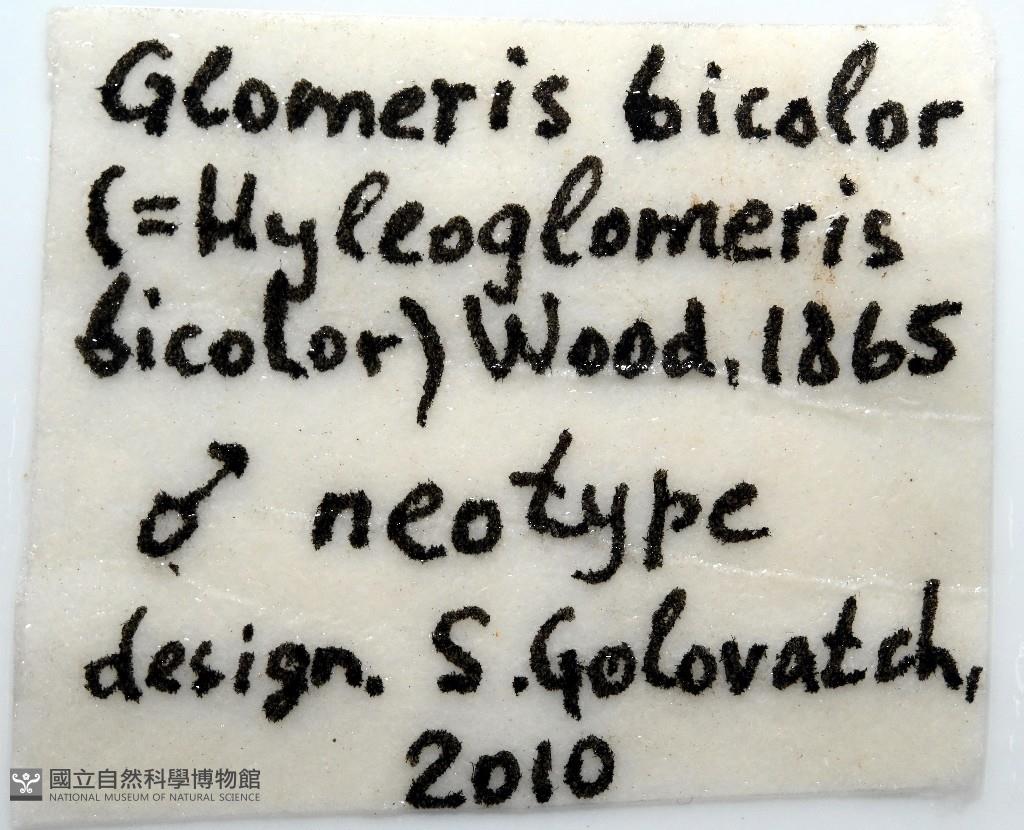 Glomeris bicolor
(=Hyleoglomeris
bicolor) Wood, 1865
♂ neotype
design. S. Golovatch,
2010
國立自然科學博物館
NATIONAL MUSEUM OF NATURAL SCIENCE